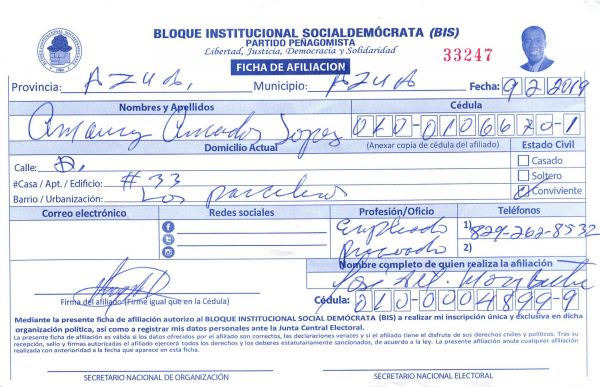 BLOQUE INSTITUCIONAL SOCIALDEMÓCRATA (BIS)
PARTIDO PEÑAGOMISTA
Libertad, Justicia, Democracia y Solidaridad
33247
FICHA DE AFILIACION
Provincia: AZUA. Municipio: AZUA Fecha: 9-2-2019
Nombres y Apellidos Cédula
Amaury Amador Lopez 010-0106670-1
Domicilio Actual (Anexar copia de cédula del afiliado) Estado Civil
Calle: D. Casado
#Casa / Apt. / Edificio: #33 Soltero
Barrio / Urbanización: Los parceleros Conviviente
Correo electrónico Redes sociales Profesión/Oficio Teléfonos
Empleado 1) 829-262-8532
Privado 2)
Nombre completo de quien realiza la afiliación
Jose Alt.
Firma del afiliado (Firme igual que en la Cédula) Cédula: 010-0004899-9
Mediante la presente ficha de afiliación autorizo al BLOQUE INSTITUCIONAL SOCIAL DEMÓCRATA (BIS) a realizar mi inscripción única y exclusiva en dicha
organización política, así como a registrar mis datos personales ante la Junta Central Electoral.
La presente ficha de afiliación es válida si los datos ofrecidos por el afiliado son correctos, las declaraciones veraces y si el afiliado tiene el disfrute de sus derechos civiles y políticos. Tras su
recepción, sello y firmas autorizadas el afiliado ejercerá todos los derechos y los deberes estatutariamente sancionados, de acuerdo a la ley. La presente afiliación anula cualquier afiliación
realizada con anterioridad a la fecha que aparece en esta ficha.
SECRETARIO NACIONAL DE ORGANIZACIÓN SECRETARIO NACIONAL ELECTORAL